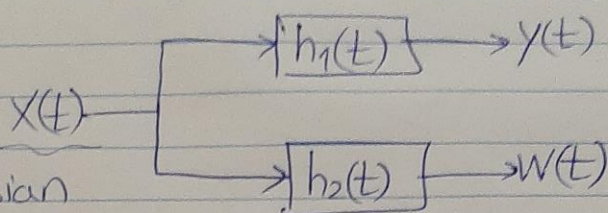 h₁(t) y(t)
X(t)
h₂(t) W(t)